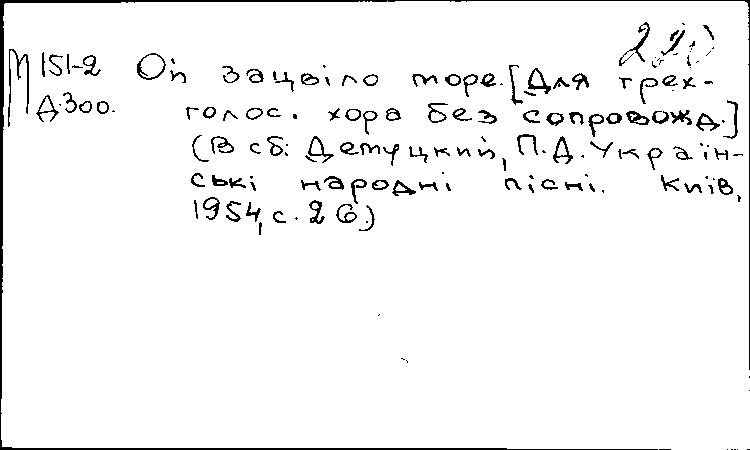 220
М 151-2 Ой зацвіло море. [Для трех-
Д.300. голос. хора без сопровожд.]
(В сб: Демуцкий, П.Д. Україн-
ські народні пісні. Київ,
1954, с. 26.)